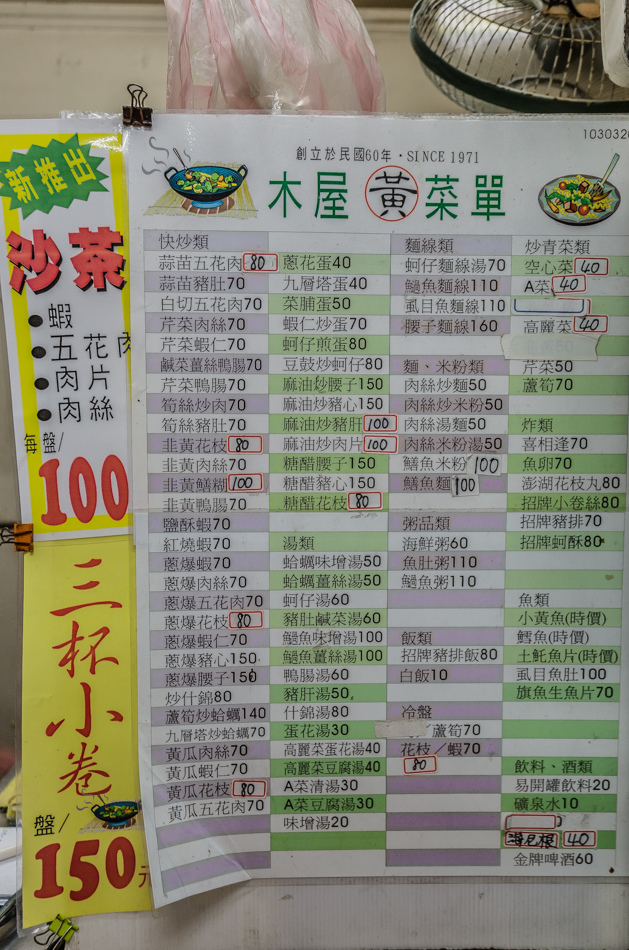 新推出
沙茶
●蝦
●五花肉
●肉片
●肉絲
每盤/
100
三杯小卷
盤/
150元
1030326
創立於民國60年・SINCE 1971
木屋 黃 菜單
快炒類
蒜苗五花肉80
蒜苗豬肚70
白切五花肉70
芹菜肉絲70
芹菜蝦仁70
鹹菜薑絲鴨腸70
芹菜鴨腸70
筍絲炒肉70
筍絲豬肚70
韭黃花枝80
韭黃肉絲70
韭黃鱔糊100
韭黃鴨腸70
鹽酥蝦70
紅燒蝦70
蔥爆蝦70
蔥爆肉絲70
蔥爆五花肉70
蔥爆花枝80
蔥爆蝦仁70
蔥爆豬心150
蔥爆腰子150
炒什錦80
蘆筍炒蛤蠣140
九層塔炒蛤蠣70
黃瓜肉絲70
黃瓜蝦仁70
黃瓜花枝80
黃瓜五花肉70
蔥花蛋40
九層塔蛋40
菜脯蛋50
蝦仁炒蛋70
蚵仔煎蛋80
豆鼓炒蚵仔80
麻油炒腰子150
麻油炒豬心150
麻油炒豬肝100
麻油炒肉片100
糖醋腰子150
糖醋豬心150
糖醋花枝80
湯類
蛤蠣味增湯50
蛤蠣薑絲湯50
蚵仔湯60
豬肚鹹菜湯60
鯢魚味增湯100
鯢魚薑絲湯100
鴨腸湯60
豬肝湯50
什錦湯80
蛋花湯30
高麗菜蛋花湯40
高麗菜豆腐湯40
A菜清湯30
A菜豆腐湯30
味增湯20
麵線類
蚵仔麵線湯70
鯢魚麵線110
虱目魚麵線110
腰子麵線160
麵、米粉類
肉絲炒麵50
肉絲炒米粉50
肉絲湯麵50
肉絲米粉湯50
鱔魚米粉100
鱔魚麵100
粥品類
海鮮粥60
魚肚粥110
鯢魚粥110
飯類
招牌豬排飯80
白飯10
冷盤
蘆筍70
花枝／蝦70
80
炒青菜類
空心菜40
A菜40
高麗菜40
芹菜50
蘆筍70
炸類
喜相逢70
魚卵70
澎湖花枝丸80
招牌小卷絲80
招牌豬排70
招牌蚵酥80
魚類
小黃魚(時價)
鱈魚(時價)
土魠魚片(時價)
虱目魚肚100
旗魚生魚片70
飲料、酒類
易開罐飲料20
礦泉水10
海尼根40
金牌啤酒60